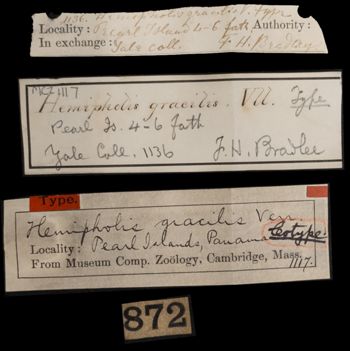 1136. Hemipholis gracilis V. type
Locality: Pearl Island 4-6 fath Authority:
In exchange: Yale Coll. F. H. Bradley
MCZ 1117
Hemipholis gracilis. Vll. Type
Pearl Is. 4-6 fath
Yale Coll. 1136 F. H. Bradlee
Type.
Hemipholis gracilis Verr.
Locality: Pearl Islands, Panama Cotype.
From Museum Comp. Zoölogy, Cambridge, Mass.
1117.
872